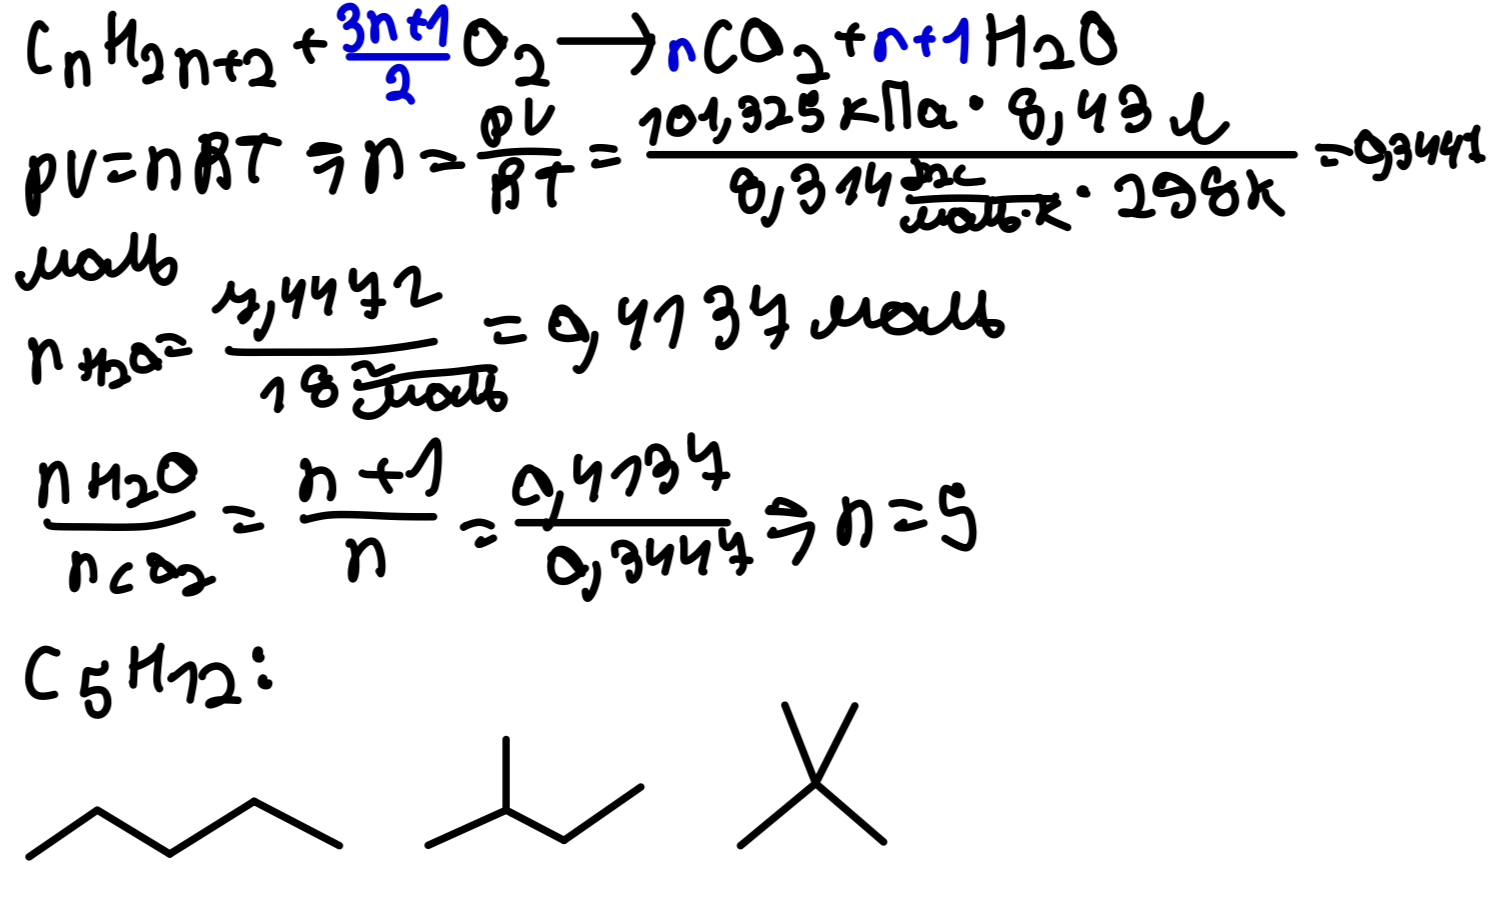 CnH2n+2 + 3n+1/2 O2 → nCO2 + n+1 H2O
pV=nRT ⇒ n = pV/RT = 101,325 кПа · 8,43 л / 8,314 Дж/моль·К · 298К = 0,3447
моль
nH2O = 7,4472 / 18 г/моль = 0,4137 моль
nH2O/nCO2 = n+1/n = 0,4137/0,3447 ⇒ n = 5
C5H12: